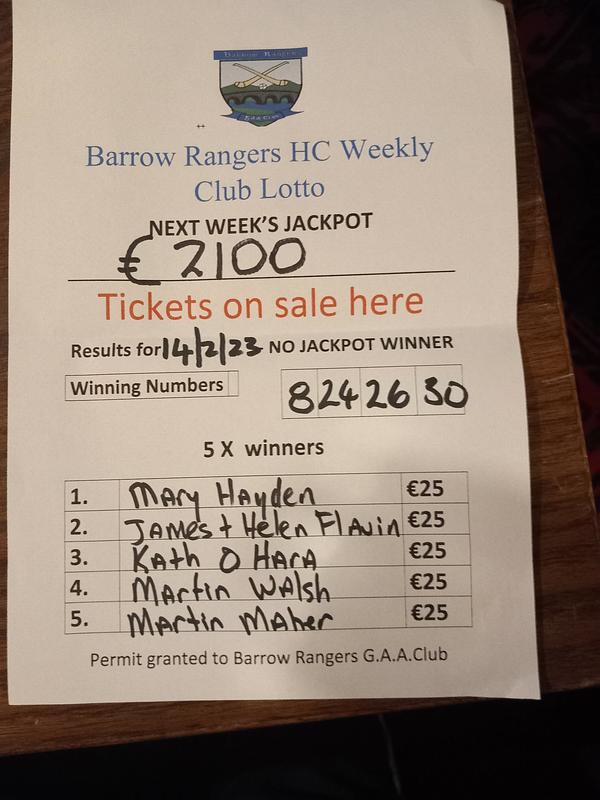 Barrow Rangers
GAA Club
Barrow Rangers HC Weekly
Club Lotto
NEXT WEEK'S JACKPOT
€ 2100
Tickets on sale here
Results for 14/2/23 NO JACKPOT WINNER
Winning Numbers 8 24 26 30
5 X winners
1. Mary Hayden €25
2. James + Helen Flavin €25
3. Kath O Hara €25
4. Martin Walsh €25
5. Martin Maher €25
Permit granted to Barrow Rangers G.A.A.Club